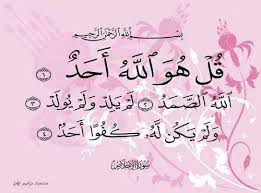 بِسْمِ ٱللَّهِ ٱلرَّحْمَٰنِ ٱلرَّحِيمِ
قُلْ هُوَ ٱللَّهُ أَحَدٌ ١
ٱللَّهُ ٱلصَّمَدُ ٢ لَمْ يَلِدْ وَلَمْ يُولَدْ ٣
وَلَمْ يَكُن لَّهُۥ كُفُوًا أَحَدٌۢ ٤
سُورَةُ ٱلْإِخْلَاصِ